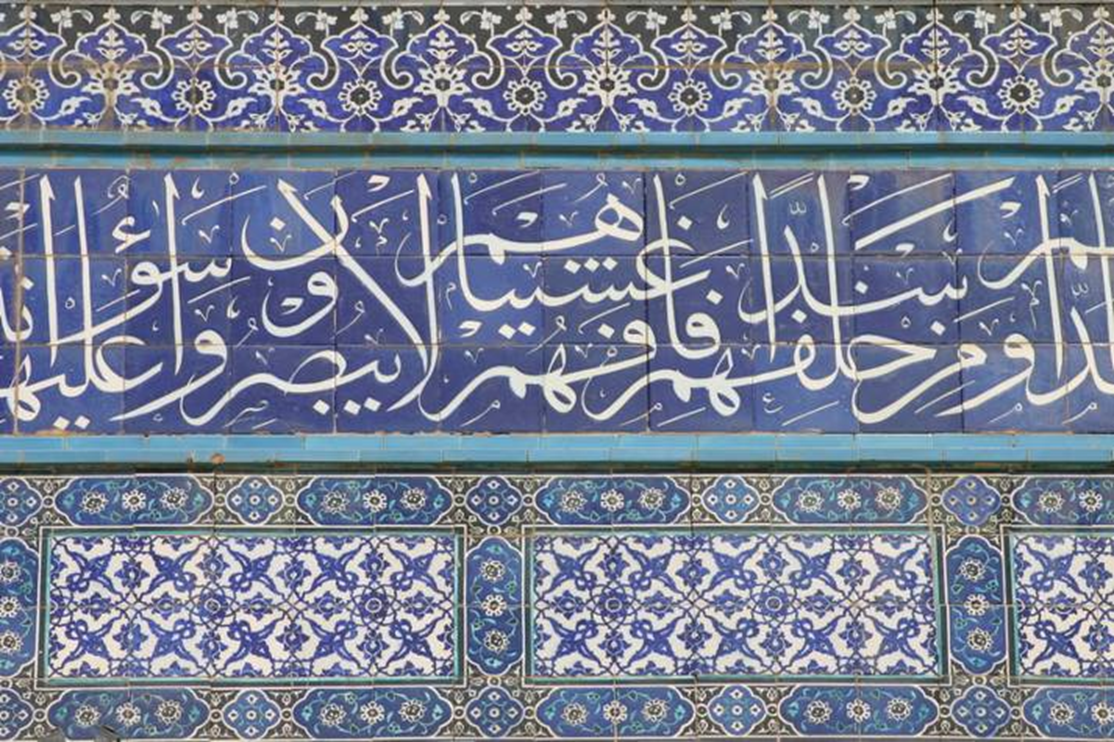 ومن خلفهم سدا فأغشيناهم فهم لا يبصرون وسواء عليهم